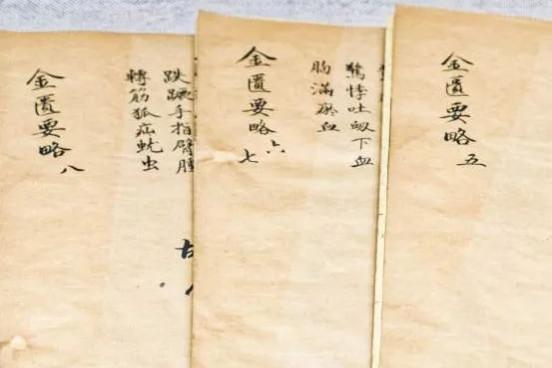 金匱要略 五
驚悸吐衄下血
胸滿瘀血
金匱要略 六
七
趺蹶手指臂腫
轉筋狐疝蚘虫
金匱要略 八